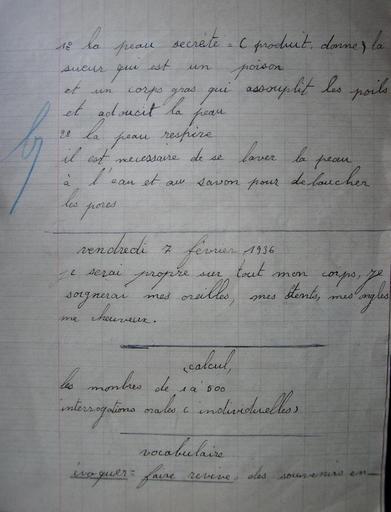 1º la peau secrète = ( produit, donne ) la
sueur qui est un poison
et un corps gras qui assouplit les poils
et adoucit la peau
2º la peau respire
il est necessaire de se laver la peau
à l'eau et au savon pour deboucher
les pores
vendredi 7 février 1936
je serai propre sur tout mon corps, je
soignerai mes oreilles, mes dents, mes ongles
me cheuveux.
calcul,
les nombres de 1 à 500
interrogations orales ( individuelles )
vocabulaire
évoquer = faire revivre, des souvenirs en-